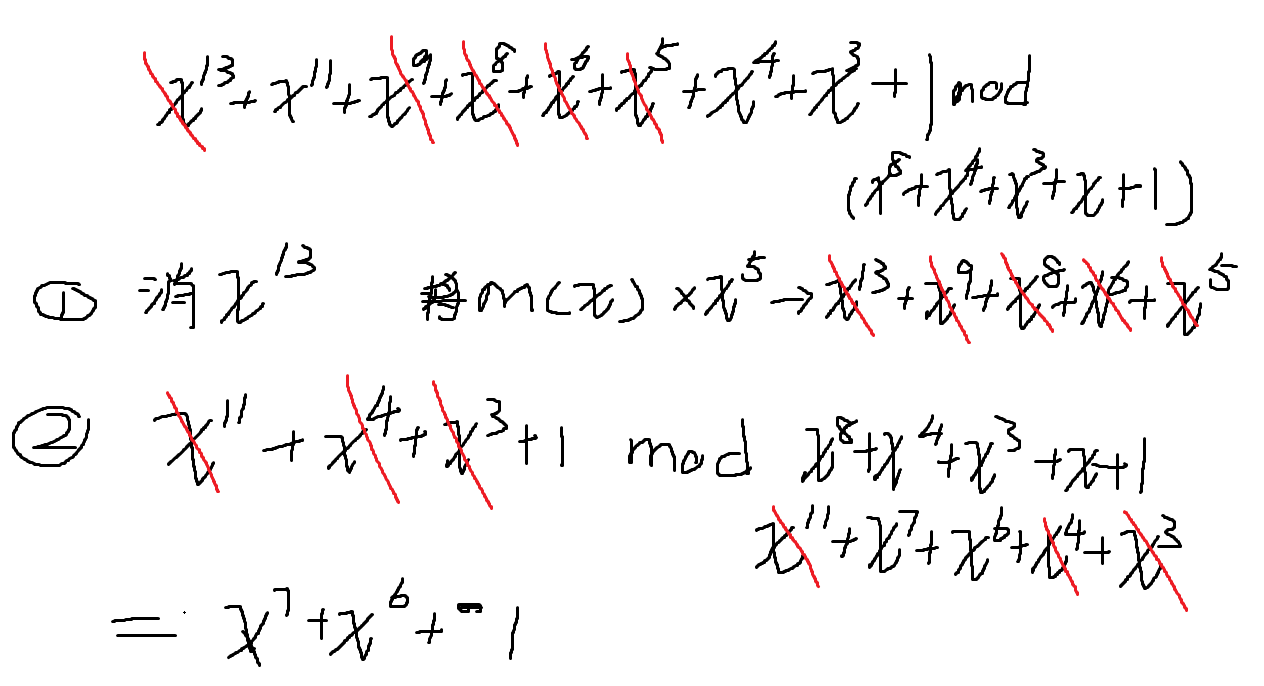 x¹³+x¹¹+x⁹+x⁸+x⁶+x⁵+x⁴+x³+1 mod
(x⁸+x⁴+x³+x+1)
① 消x¹³ m(x)×x⁵→x¹³+x⁹+x⁸+x⁶+x⁵
② x¹¹+x⁴+x³+1 mod x⁸+x⁴+x³+x+1
x¹¹+x⁷+x⁶+x⁴+x³
= x⁷+x⁶+1